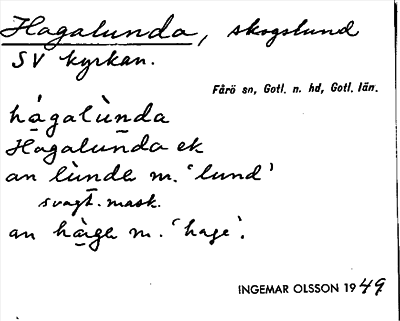 Hagalunda, skogslund
SV kyrkan.
Fårö sn, Gotl. n. hd, Gotl. län.
hágalùnda
Hagalunda ek
an lùnda m. 'lund'
svagt. mask.
an hàga m. 'hage'.
INGEMAR OLSSON 1949